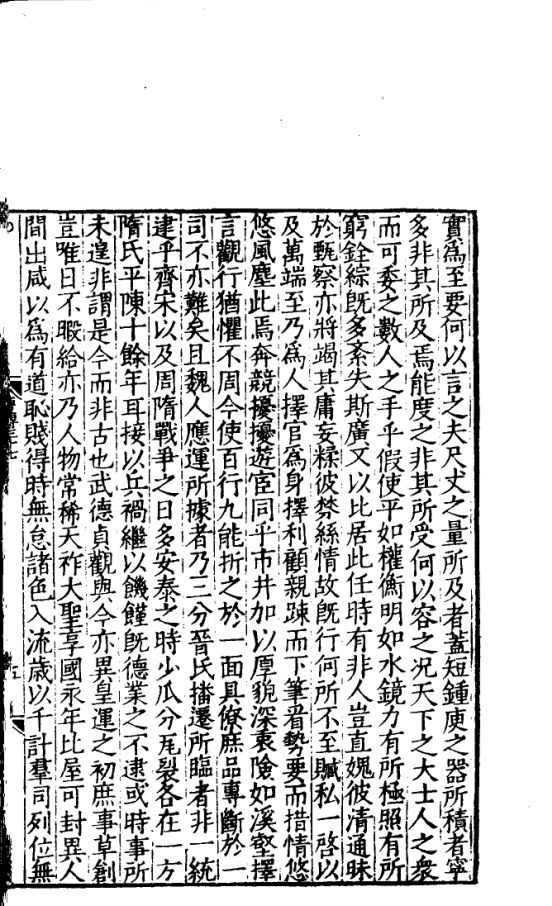 實爲至要何以言之夫尺丈之量所及者蓋短鍾庾之器所積者寧
多非其所及焉能度之非其所受何以容之况天下之大士人之衆
而可委之數人之手乎假使平如權衡明如水鏡力有所極照有所
窮銓綜旣多紊失斯廣又以比居此任時有非人豈直媿彼清通昧
於甄察亦將竭其庸妄糅彼棼絲情故旣行何所不至贓私一啓以
及萬端至乃爲人擇官爲身擇利顧親踈而下筆看勢要而措情悠
悠風塵此焉奔競擾擾遊宦同乎市井加以厚貌深衷險如溪壑擇
言觀行猶懼不周今使百行九能折之於一面具僚庶品專斷於一
司不亦難矣且魏人應運所據者乃三分晉氏播遷所臨者非一統
逮乎齊宋以及周隋戰爭之日多安泰之時少瓜分瓦裂各在一方
隋氏平陳十餘年耳接以兵禍繼以饑饉旣德業之不逮或時事所
未遑非謂是今而非古也武德貞觀與今亦異皇運之初庶事草創
豈唯日不暇給亦乃人物常稀天祚大聖享國永年比屋可封異人
間出咸以爲有道恥賤得時無怠諸色入流歲以千計羣司列位無